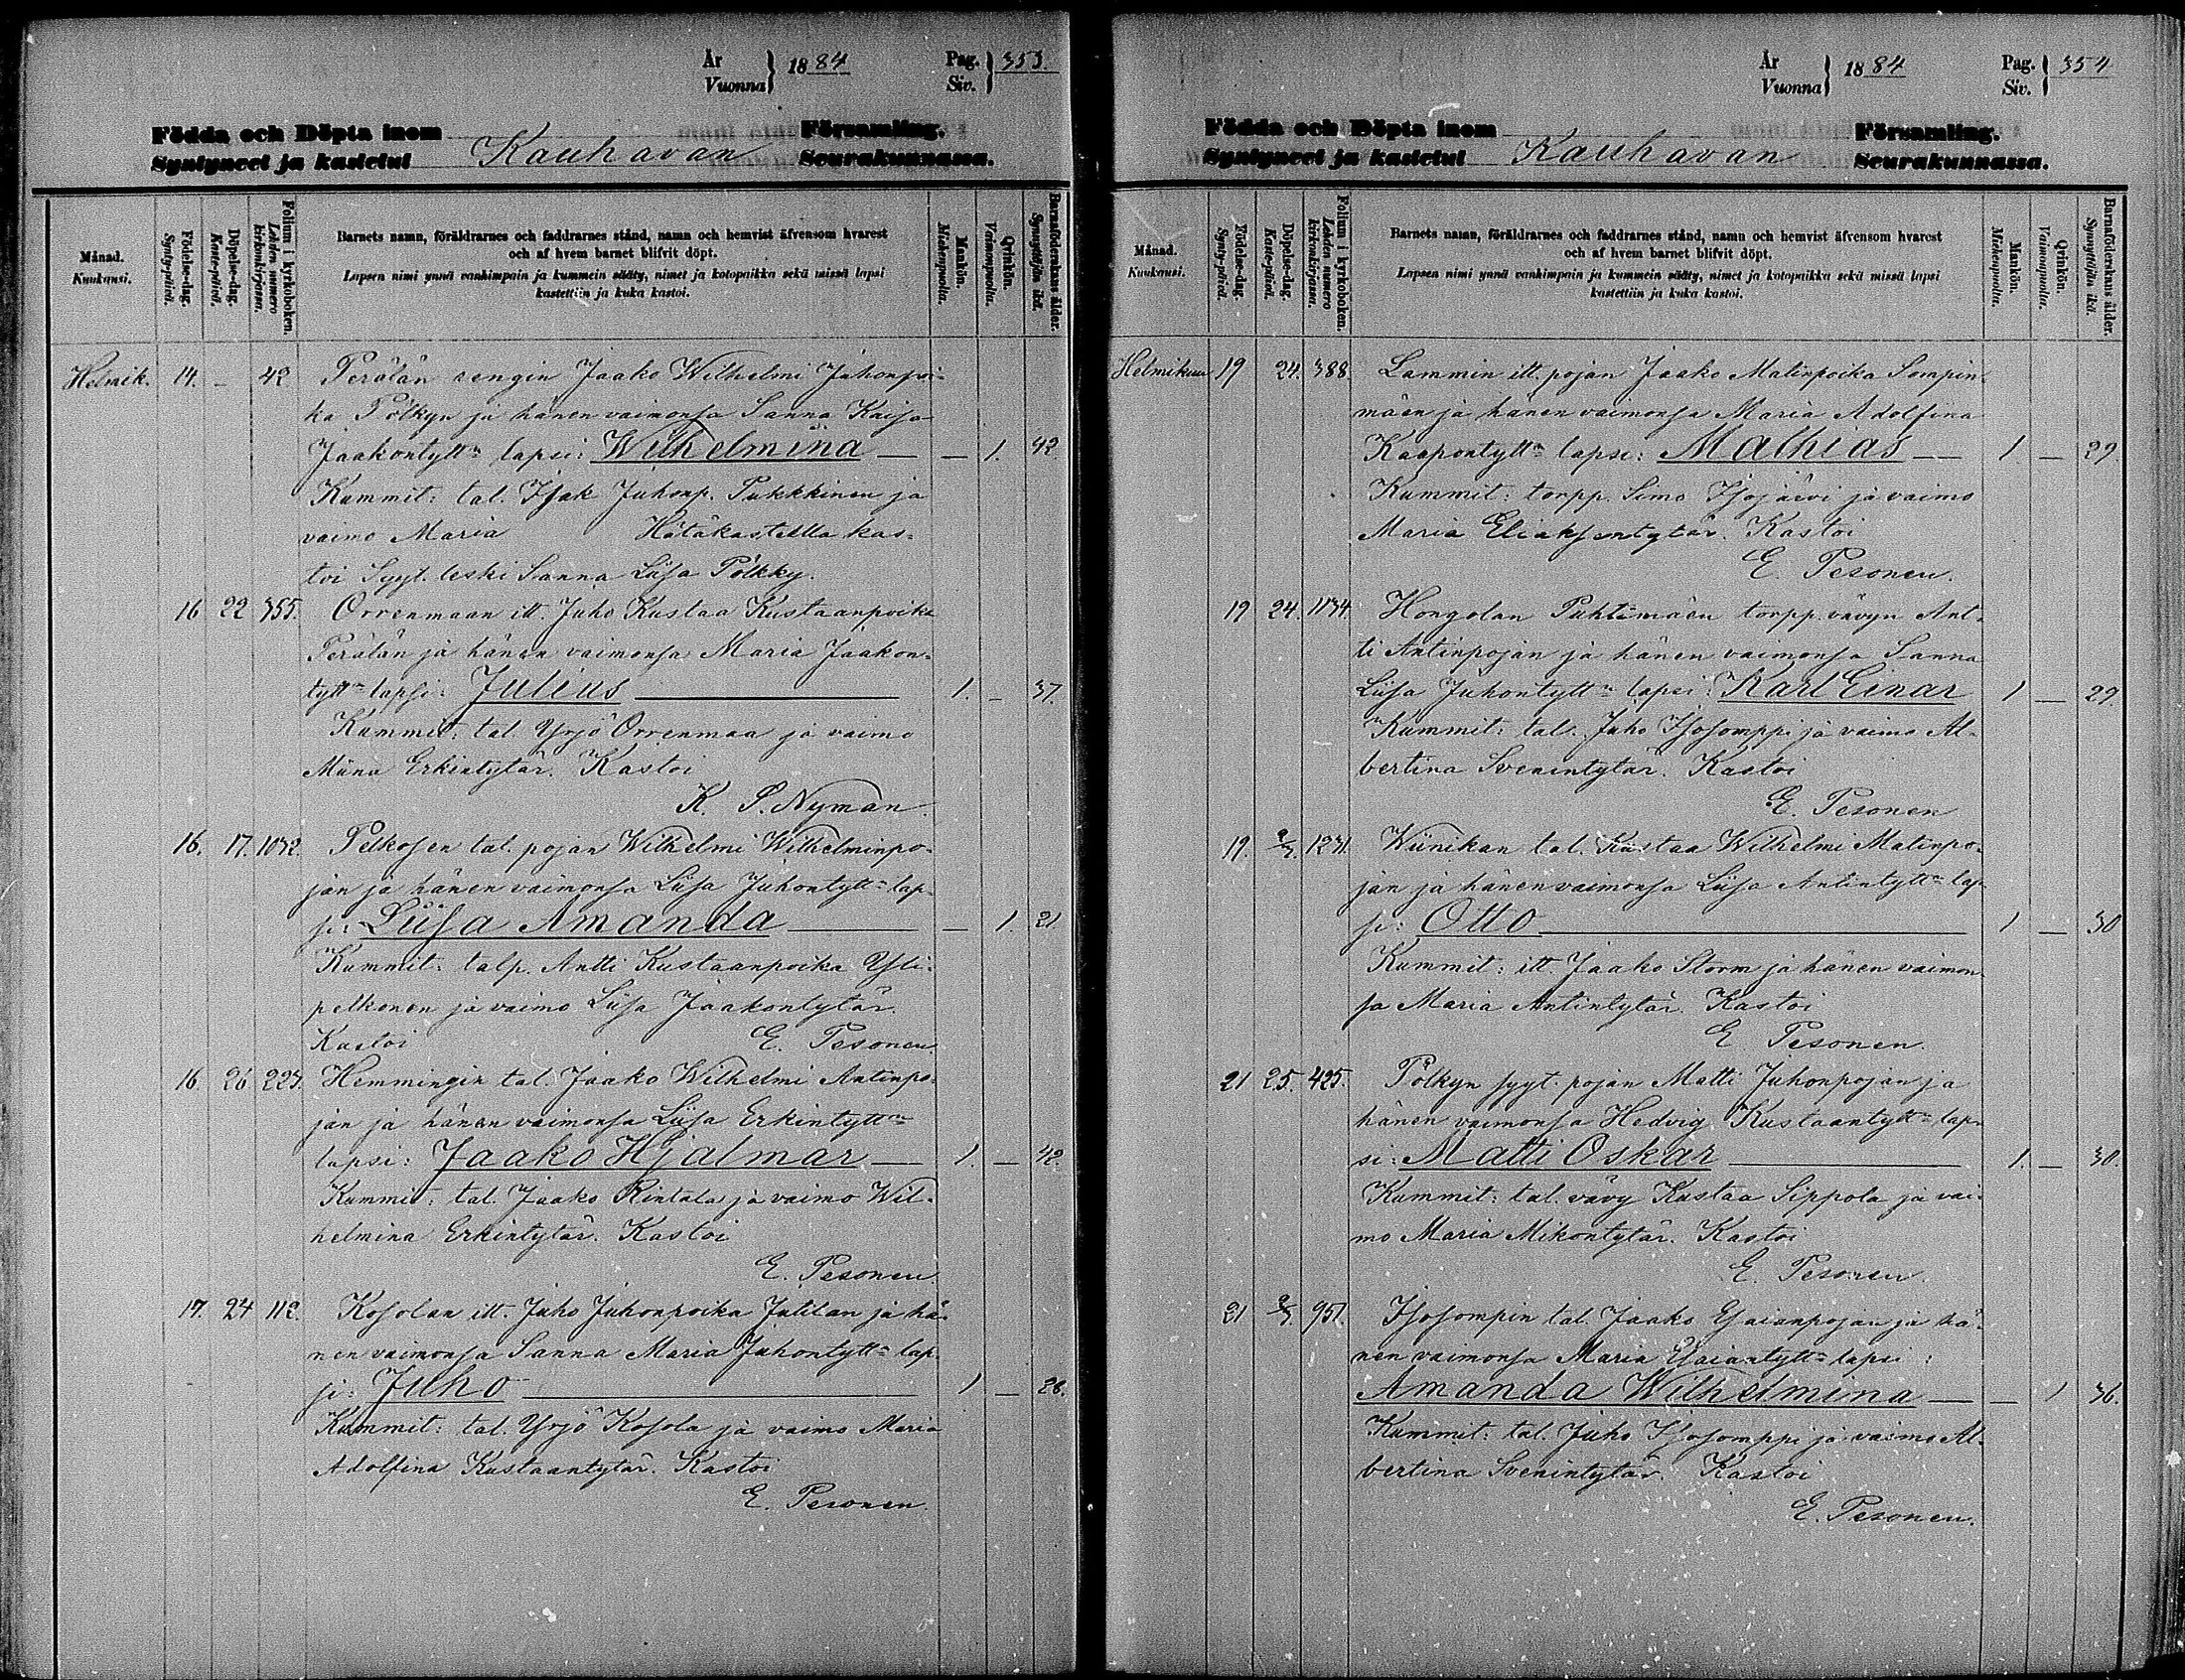 År
Vuonna } 1884 Pag.
Siv. } 353.
Födda och Döpta inom Församling.
Syntyneet ja kastetut Kauhavan Seurakunnassa.
Månad.
Kuukausi.
Födelse-dag.
Synty-päivä.
Döpelse-dag.
Kaste-päivä.
Folium i kyrkoboken.
Lehden numero
kirkonkirjassa.
Barnets namn, föräldrarnes och faddrarnes stånd, namn och hemvist äfvensom hvarest
och af hvem barnet blifvit döpt.
Lapsen nimi ynnä vanhimpain ja kummein sääty, nimet ja kotopaikka sekä missä lapsi
kastettiin ja kuka kastoi.
Mankön.
Miehenpuolia.
Qvinkön.
Vaimonpuolia.
Barnaföderskans ålder.
Synnyttäjän ikä.
Helmik. 14. – 42 Perälän rengin Jaako Wilhelmi Juhonpoi-
ka Pölkyn ja hänen vaimonsa Sanna Kaisa
Jaakontytt:n lapsi: Wilhelmina — — 1. 42
Kummit: tal. Isak Juhonp. Pukkkinen ja
vaimo Maria Hätäkasteella kas-
toi Syyt. leski Sanna Liisa Pölkky.
16 22 355. Orrenmaan itt. Juho Kustaa Kustaanpoika
Perälän ja hänen vaimonsa Maria Jaakon-
tytt:n lapsi: Julius 1. – 37.
Kummit: tal. Yrjö Orrenmaa ja vaimo
Miina Erkintytär. Kastoi
K. S. Nyman.
16. 17. 1032. Pelkosen tal. pojan Wilhelmi Wilhelminpo-
jan ja hänen vaimonsa Liisa Juhontytt:n lap-
si: Liisa Amanda — 1. 21
Kummit: talp. Antti Kustaanpoika Yli-
pelkonen ja vaimo Liisa Jaakontytär.
Kastoi E. Pesonen.
16. 26 227. Hemmingin tal. Jaako Wilhelmi Antinpo-
jan ja hänen vaimonsa Liisa Erkintytt:n
lapsi: Jaako Hjalmar — 1. – 42.
Kummit: tal. Jaako Rintala ja vaimo Wil-
helmina Erkintytär. Kastoi
E. Pesonen.
17. 24 112. Kosolan itt. Juho Juhonpoika Jutilan ja hä-
nen vaimonsa Sanna Maria Juhontytt:n lap-
si: Juho 1 – 28.
Kummit: tal. Yrjö Kosola ja vaimo Maria
Adolfina Kustaantytär. Kastoi
E. Pesonen.
År
Vuonna } 1884 Pag.
Siv. } 354
Födda och Döpta inom Församling.
Syntyneet ja kastetut Kauhavan Seurakunnassa.
Månad.
Kuukausi.
Födelse-dag.
Synty-päivä.
Döpelse-dag.
Kaste-päivä.
Folium i kyrkoboken.
Lehden numero
kirkonkirjassa.
Barnets namn, föräldrarnes och faddrarnes stånd, namn och hemvist äfvensom hvarest
och af hvem barnet blifvit döpt.
Lapsen nimi ynnä vanhimpain ja kummein sääty, nimet ja kotopaikka sekä missä lapsi
kastettiin ja kuka kastoi.
Mankön.
Miehenpuolia.
Qvinkön.
Vaimonpuolia.
Barnaföderskans ålder.
Synnyttäjän ikä.
Helmikuu 19 24. 388. Lammin itt. pojan Jaako Matinpoika Sompin-
mäen ja hänen vaimonsa Maria Adolfina
Kaapontytt:n lapsi: Mathias — 1 – 29
Kummit: torpp. Simo Isojärvi ja vaimo
Maria Eliaksentytär. Kastoi
E. Pesonen.
19 24. 1134. Hongolan Puhtimäen torpp. vävyn Ant-
ti Antinpojan ja hänen vaimonsa Sanna
Liisa Juhontytt:n lapsi: Karl Einar 1 – 29.
Kummit: tal. Juho Isosomppi ja vaimo Al-
bertina Svenintytär. Kastoi
E. Pesonen
19. 2/3. 1231. Wiinikan tal. Kustaa Wilhelmi Matinpo-
jan ja hänen vaimonsa Liisa Antintytt:n lap-
si: Otto 1 – 30
Kummit: itt. Jaako Storm ja hänen vaimon-
sa Maria Antintytär. Kastoi
E. Pesonen.
21 25. 425. Pölkyn syyt. pojan Matti Juhonpojan ja
hänen vaimonsa Hedvig Kustaantytt:n lap-
si: Matti Oskar 1. – 30.
Kummit: tal. vävy Kustaa Sippola ja vai-
mo Maria Mikontytär. Kastoi
E. Pesonen.
21 2/3. 951. Isosompin tal. Jaako Esaianpojan ja hä-
nen vaimonsa Maria Esaiantytt:n lapsi:
Amanda Wilhelmina — — 1 36.
Kummit: tal. Juho Isosomppi ja vaimo Al-
bertina Svenintytär. Kastoi
E. Pesonen.